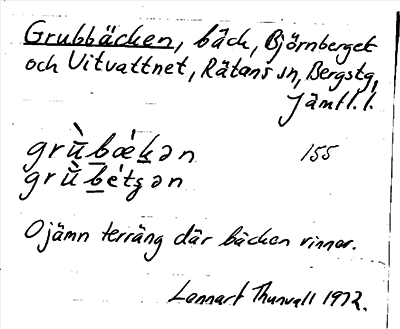 Grubbäcken, bäck, Björnberget
och Vitvattnet, Rätans sn, Bergs tg,
Jämtl. l.
grùbǽkən 155
grùbétʂən
Ojämn terräng där bäcken rinner.
Lennart Thunvall 1972.